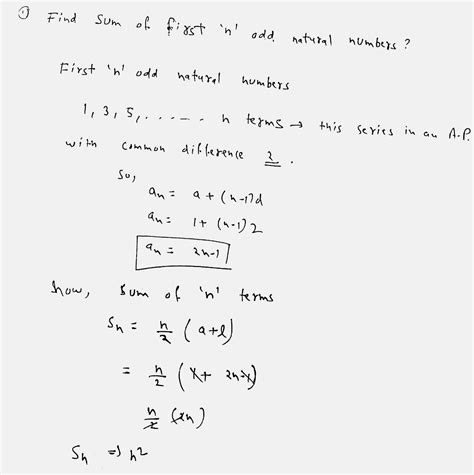 ① Find sum of first 'n' odd natural numbers?
First 'n' odd natural numbers
1, 3, 5, . - - - - . n terms → this series in an A.P.
with common difference 2.
So,
an = a + (n-1)d
an = 1 + (n-1) 2
an = 2n-1
Now, sum of 'n' terms
Sn = n/2 (a+l)
= n/2 (1 + 2n-1)
n/2 (2n)
Sn => n2